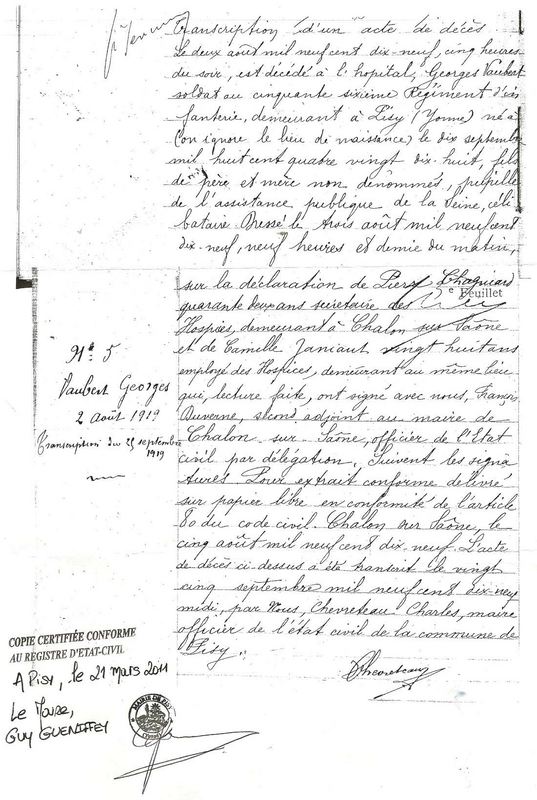 Transcription d'un acte de décès
Le deux août mil neuf cent dix-neuf, cinq heures
du soir, est décédé à l'hopital, Georges Vaubert
soldat au cinquante sixième Régiment d'in
fanterie, demeurant à Pisy (Yonne) né à
(on ignore le lieu de naissance) le dix septembre
mil huit cent quatre vingt dix-huit, fils
de père et mère non dénommés, pupille
de l'assistance publique de la Seine, céli
bataire. Dressé le trois août mil neuf cent
dix-neuf, neuf heures et demie du matin,
sur la déclaration de Pierre Chagniard
2e Feuillet
quarante deux ans secrétaire des
Hospices, demeurant à Chalon sur Saône
et de Camille Janiaut vingt huit ans
employé des Hospices, demeurant au même lieu
qui, lecture faite, ont signé avec nous, Francis
Duverne, second adjoint au maire de
Chalon sur Saône, officier de l'Etat
civil par délégation, Suivent les signa
tures Pour extrait conforme délivré
sur papier libre en conformité de l'article
80 du code civil. Chalon sur Saône, le
cinq août mil neuf cent dix neuf. L'acte
de décès ci-dessus a été transcrit le vingt
cinq septembre mil neuf cent dix-neuf
midi, par Nous, Chevreteau Charles, maire
officier de l'état civil de la commune de
Pisy.
Chevreteau
N° 5
Vaubert Georges
2 août 1919
Transcription du 25 septembre
1919
COPIE CERTIFIÉE CONFORME
AU REGISTRE D'ETAT-CIVIL
A PISY, le 21 mars 2011
Le Maire,
GUY GUENIFFEY
MAIRIE DE PISY